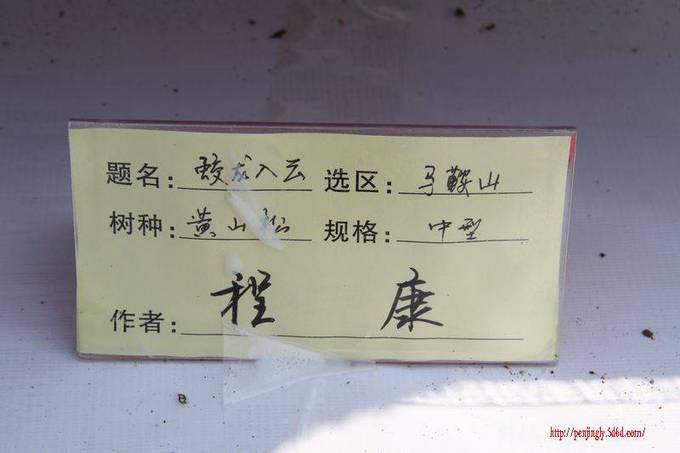 题名: 蛟龙入云 选区: 马鞍山
树种: 黄山松 规格: 中型
作者: 程 康
http://penjingly.5d6d.com/